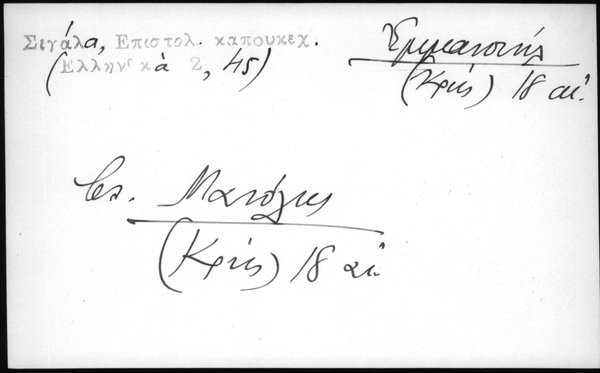 Σιγάλα, Επιστολ. καπουκεχ.
(Ελληνικὰ 2, 45)
Ἐμμανουήλ
(Κρής) 18 αἰ.
βλ. Μανόλης
(Κρής) 18 αἰ.